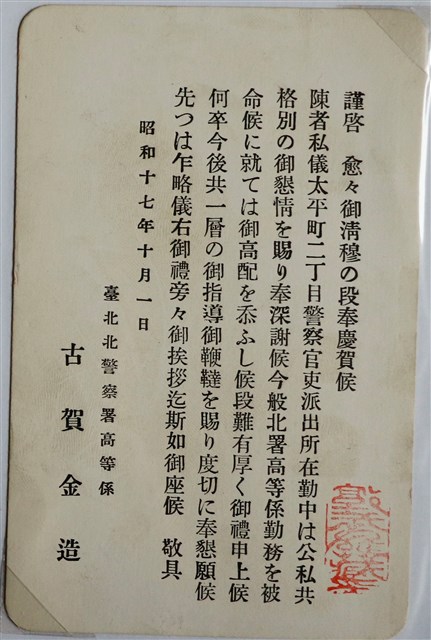 謹啓　愈々御淸穆の段奉慶賀候
陳者私儀太平町二丁目警察官吏派出所在勤中は公私共
格別の御懇情を賜り奉深謝候今般北署高等係勤務を被
命候に就ては御高配を忝ふし候段難有厚く御禮申上候
何卒今後共一層の御指導御鞭韃を賜り度切に奉懇願候
先つは乍略儀右御禮旁々御挨拶迄斯如御座候　敬具
昭和十七年十月一日
臺北北警察署高等係
古賀金造